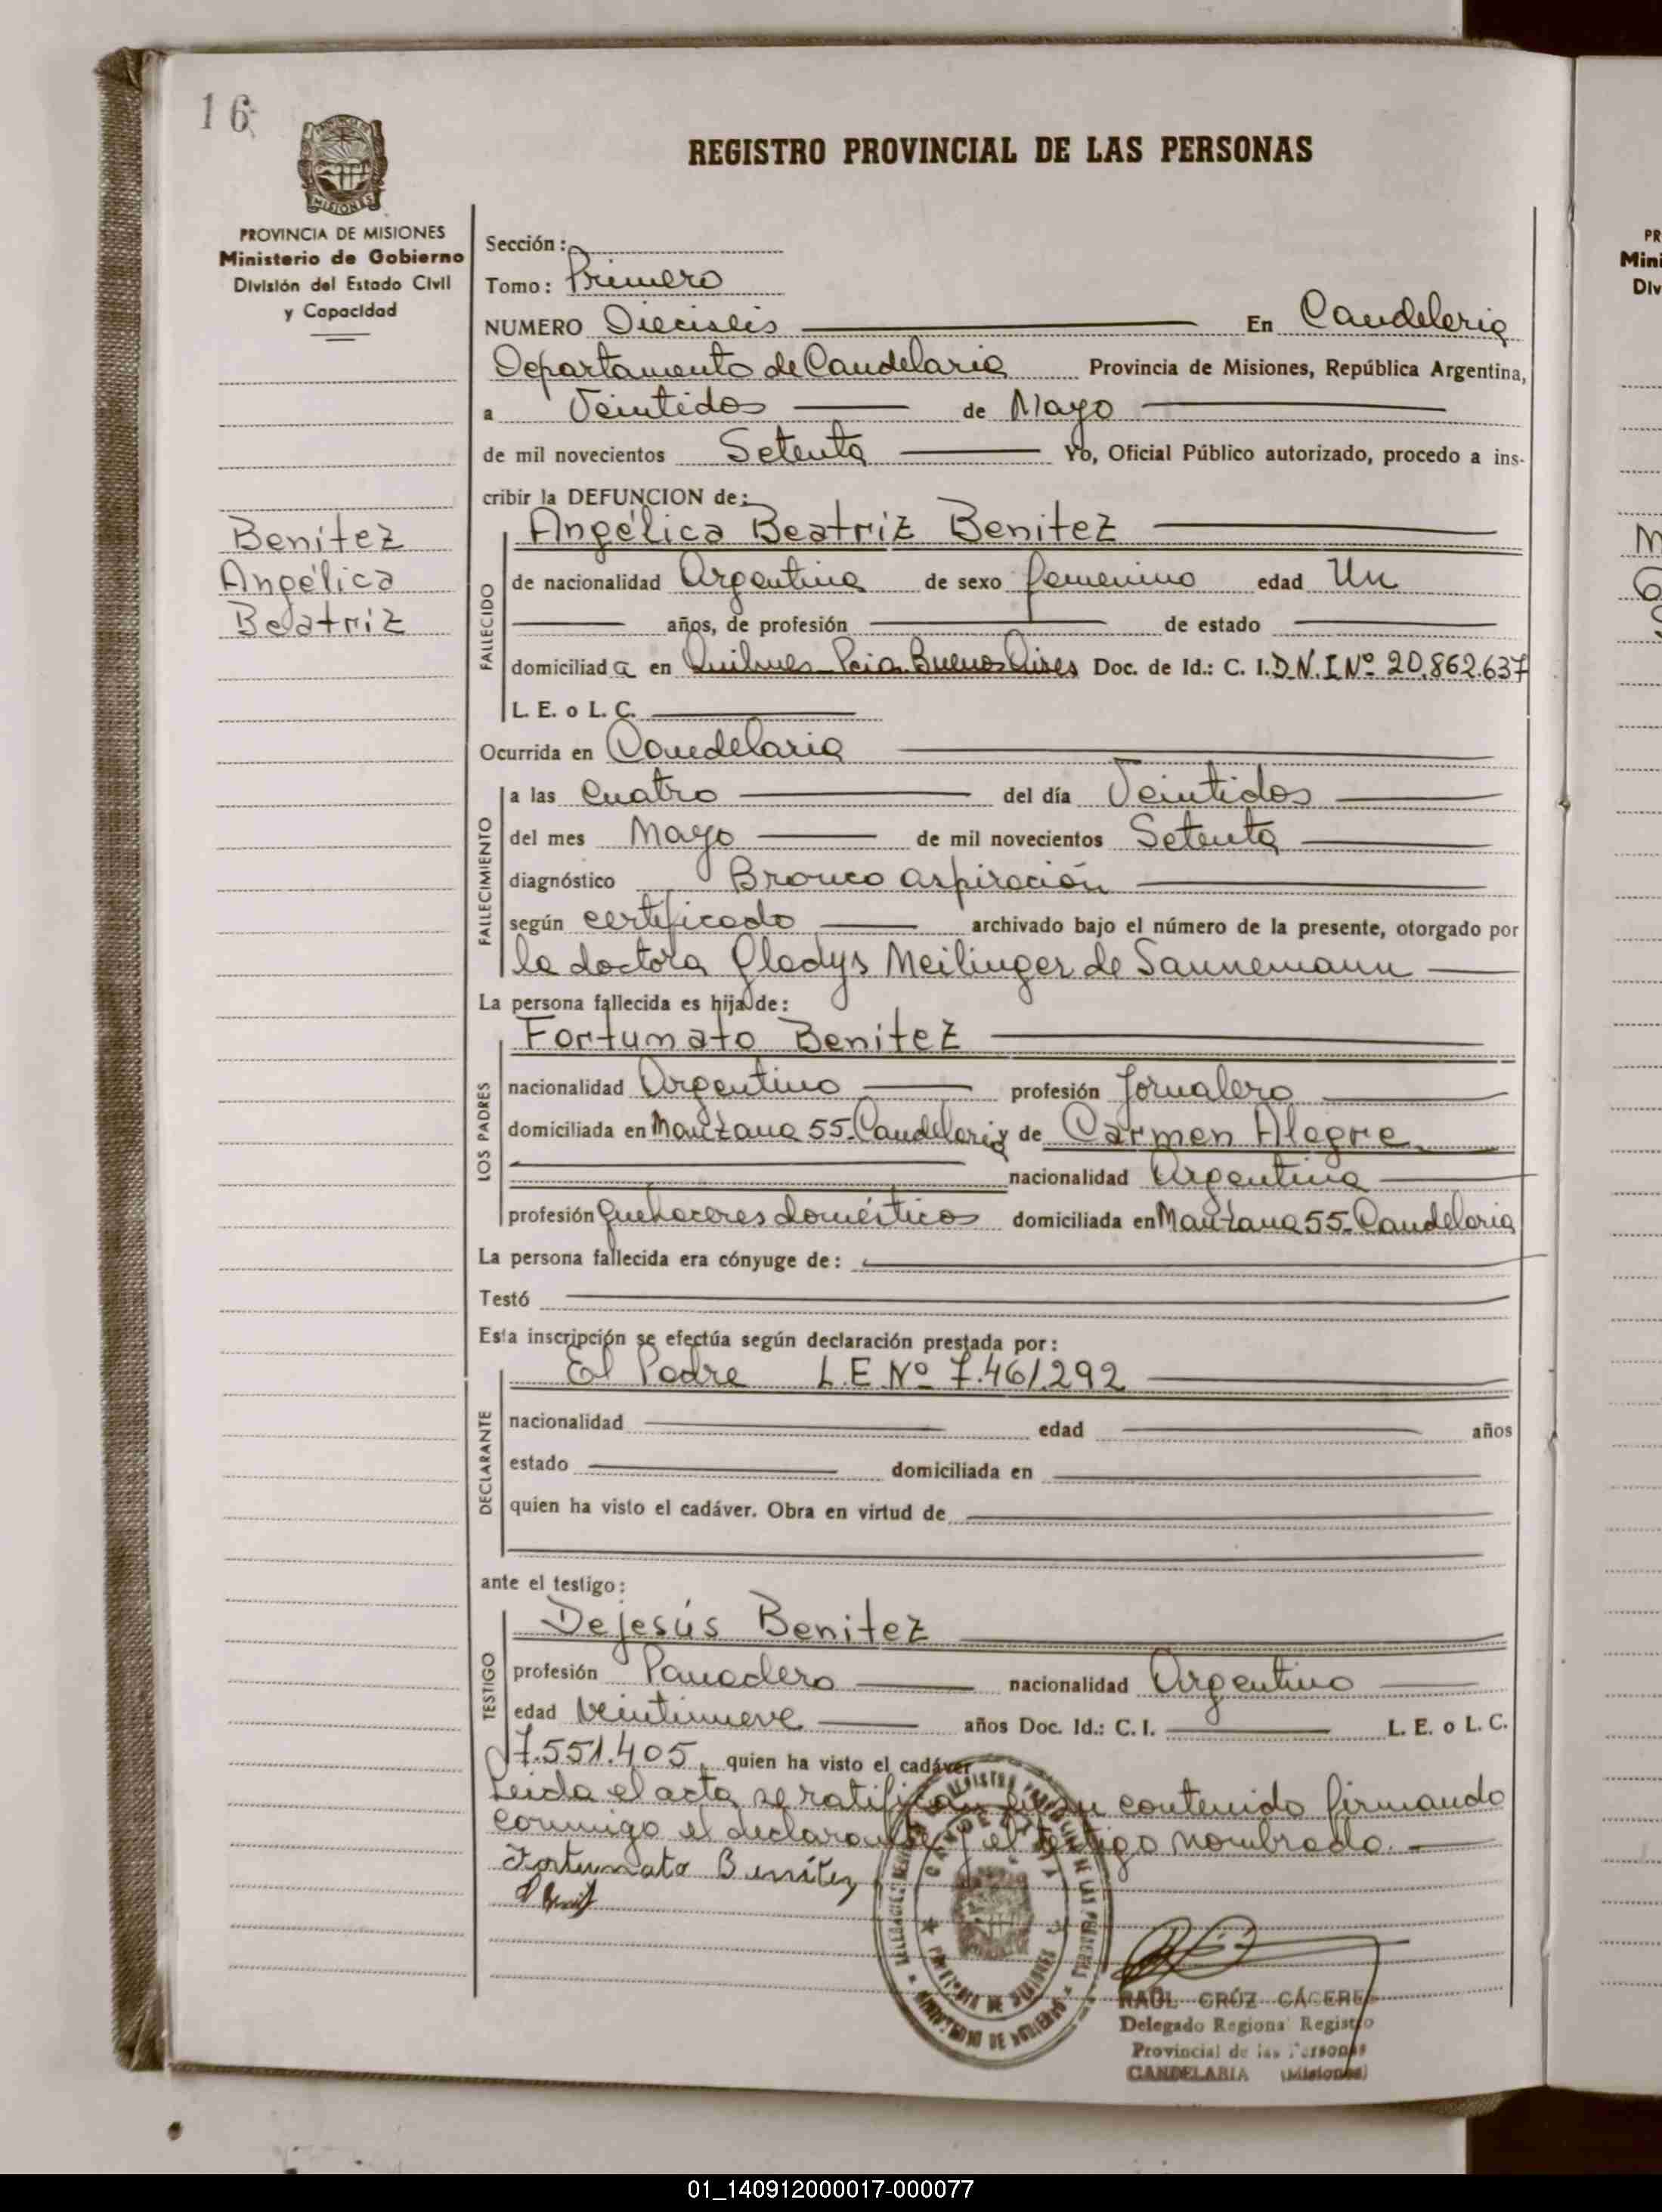 16
REGISTRO PROVINCIAL DE LAS PERSONAS
MISIONES
PROVINCIA DE MISIONES
Ministerio de Gobierno
División del Estado Civil
y Capacidad
Benítez
Angélica
Beatriz
Sección:
Tomo: Primero
NUMERO Dieciseis En Candelaria
Departamento de Candelaria Provincia de Misiones, República Argentina,
a Veintidos de Mayo
de mil novecientos Setenta Yo, Oficial Público autorizado, procedo a ins-
cribir la DEFUNCION de:
Angélica Beatriz Benitez
FALLECIDO
de nacionalidad Argentina de sexo femenino edad Un
años, de profesión de estado
domiciliada en Quilmes Pcia. Buenos Aires Doc. de Id.: C. I. D.N.I Nº 20.862.637
L. E. o L. C.
Ocurrida en Candelaria
FALLECIMIENTO
a las Cuatro del día Veintidos
del mes Mayo de mil novecientos Setenta
diagnóstico Bronco aspiración
según certificado archivado bajo el número de la presente, otorgado por
la doctora Gladys Meilinger de Sannemann
La persona fallecida es hija de:
Fortunato Benitez
LOS PADRES
nacionalidad Argentino profesión Jornalero
domiciliada en Manzana 55-Candelaria y de Carmen Alegre
nacionalidad Argentina
profesión Quehaceres domésticos domiciliada en Manzana 55-Candelaria
La persona fallecida era cónyuge de:
Testó
Esta inscripción se efectúa según declaración prestada por:
El Padre L.E Nº 7.461.292
DECLARANTE
nacionalidad edad años
estado domiciliada en
quien ha visto el cadáver. Obra en virtud de
ante el testigo:
Dejesús Benitez
TESTIGO
profesión Panadero nacionalidad Argentino
edad Veintinueve años Doc. Id.: C. I. L. E. o L. C.
7.551.405, quien ha visto el cadáver
Leida el acta se ratifican en su contenido firmando
conmigo el declarante y el testigo nombrado.-
Fortunato Benítez
RAÚL CRÚZ CÁCERES
Delegado Regional Registro
Provincial de las Personas
CANDELARIA (Misiones)
PR
Mini
Div
01_140912000017-000077